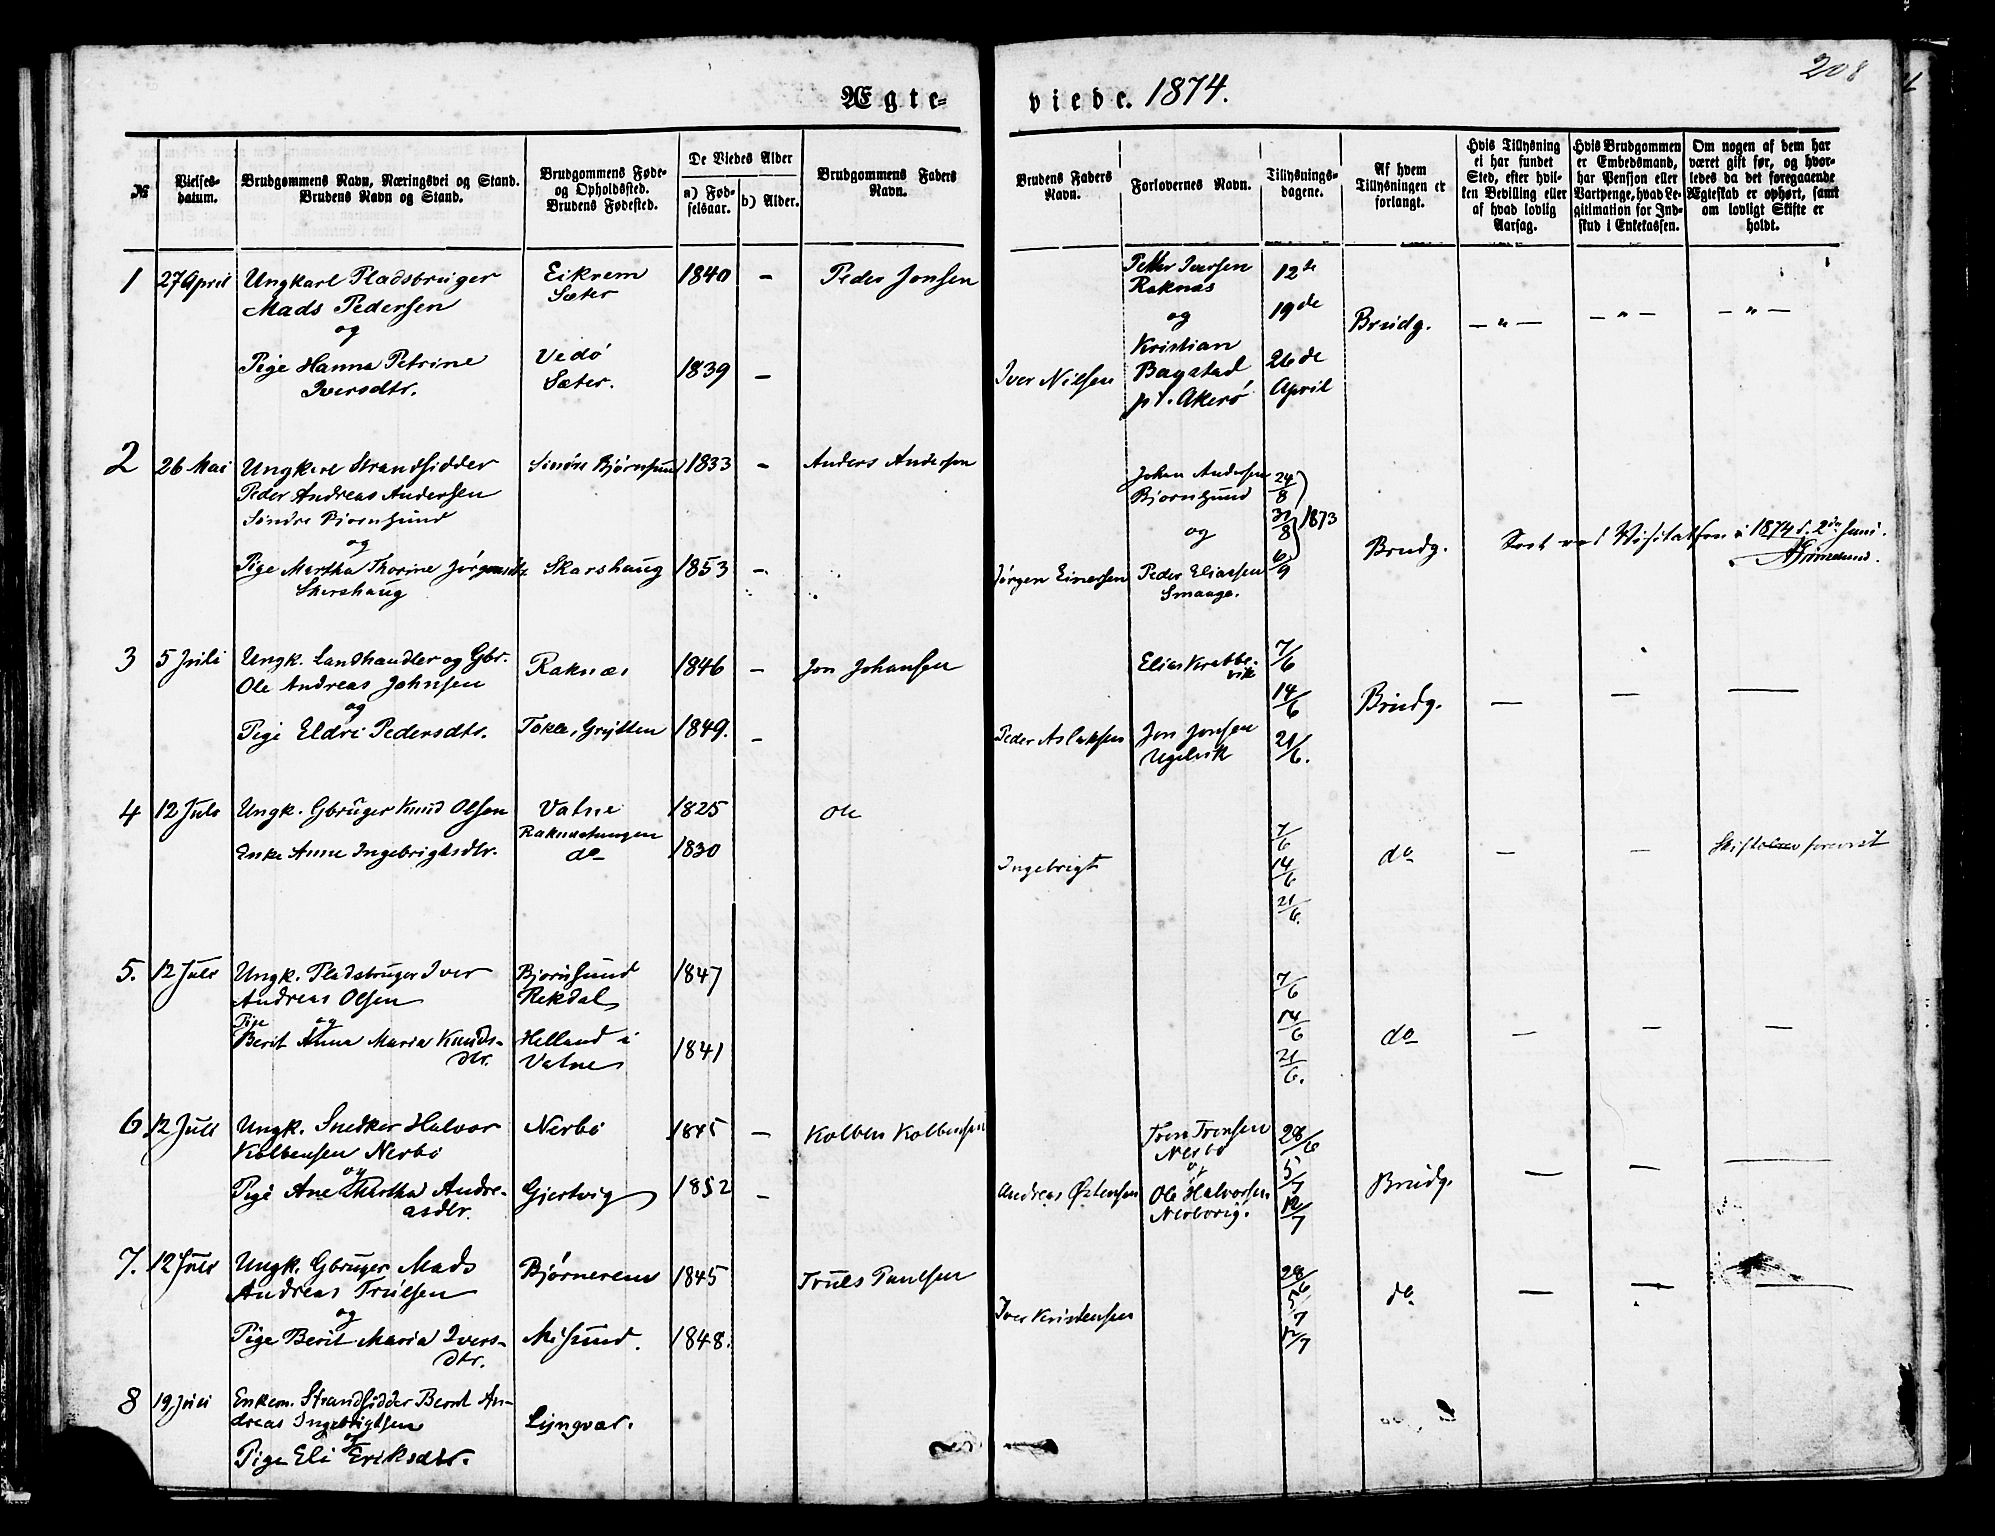 208
Ægte-
viede. 1874.
№
Vielses-
datum.
Brudgommens Navn, Næringsvei og Stand.
Brudens Navn og Stand.
Brudgommens Føde-
og Opholdssted.
Brudens Fødested.
De Viedes Alder
a) Fød-
selsaar.
b) Alder.
Brudgommens Faders
Navn.
Brudens Faders
Navn.
Forlovernes Navn.
Tillysnings-
dagene.
Af hvem
Tillysningen er
forlangt.
Hvis Tillysning
ei har fundet
Sted, efter hvil-
ken Bevilling eller
af hvad lovlig
Aarsag.
Hvis Brudgommen
er Embedsmand,
har Pension eller
Vartpenge, hvad Le-
gitimation for Ind-
skud i Enkekassen.
Om nogen af dem har
været gift før, og hvor-
ledes da det foregaaende
Ægteskab er ophørt, samt
om lovligt Skifte er
holdt.
1
27 April
Ungkarl Pladsbruger
Mads Pedersen
og
Pige Hanna Petrine
Iversdtr.
Eikrem
Sæter
Vedø
Sæter.
1840 -
1839 -
Peder Jonsen
Iver Nielsen
Petter Iversen
Raknæs
og
Kristian
Bagstad
p.t. Akerø
12te
19de
26de
April
Brudg.
- " -
- " -
- " -
2
26 Mai
Ungkarl Strandsidder
Peder Andreas Andersen
Søndre Bjørnsund
og
Pige Martha Thorine Jørgensdtr
Skarshaug
Søndre Bjørnsund
Skarshaug
1833 -
1853 -
Anders Andersen
Jørgen Einersen
Johan Andersen
Bjørnsund
og
Peder Eliassen
Smaage.
24/8
31/8
6/9
1873
Brudg.
Seet ved Visitatsen i 1874 d. 2den Juni.
3
5 Juli
Ungk. Landhandler og Gbr.
Ole Andreas Johnsen
og
Pige Eldri Pedersdtr.
Raknæs
Tokle, Grytten
1846 -
1849. -
Jon Johansen
Peder Aslaksen
Elias Krabbe-
vik
Jon Jonsen
Ugelvik
7/6
14/6
21/6.
Brudg.
-
-
-
4
12 Juli
Ungk. Gbruger Knud Olsen
Enke Anne Ingebrigtsdtr.
Vatne
Raknestangen
do
1825
1830
Ole
Ingebrigt
7/6
14/6
21/6.
do
-
-
Skiftebrev forevist
5.
12 Juli
Ungk. Pladsbruger Iver
Andreas Olsen
og
Pige
Berit Anna Maria Knuds-
dtr.
Bjørnsund
Rekdal
Helland i
Vatne
1847
1841
7/6
14/6
21/6.
do
-
-
-
6
12 Juli
Ungk. Snedker Halvor
Kolbensen Nerbø
og
Pige Ane Martha Andre-
asdtr.
Nerbø
Gjertvig
1845 -
1852 -
Kolben Kolbensen
Andreas Østensen
Tron Tronsen
Nerbø
og
Ole Halvorsen
Nerborig.
28/6
5/7
12/7
Brudg.
-
-
-
7.
12 Juli
Ungk. Gbruger Mads
Andreas Trulsen
og
Pige Berit Maria Ivers-
dtr.
Bjørnerem
Misund.
1845
1848.
Truls Paulsen
Iver Kristensen
28/6
5/7
12/7
do.
-
-
-
8
19 Juli
Enkem. Strandsidder Bernt An-
dreas Ingebrigtsen
og
Pige Eli Eriksdtr.
Lyngvær.